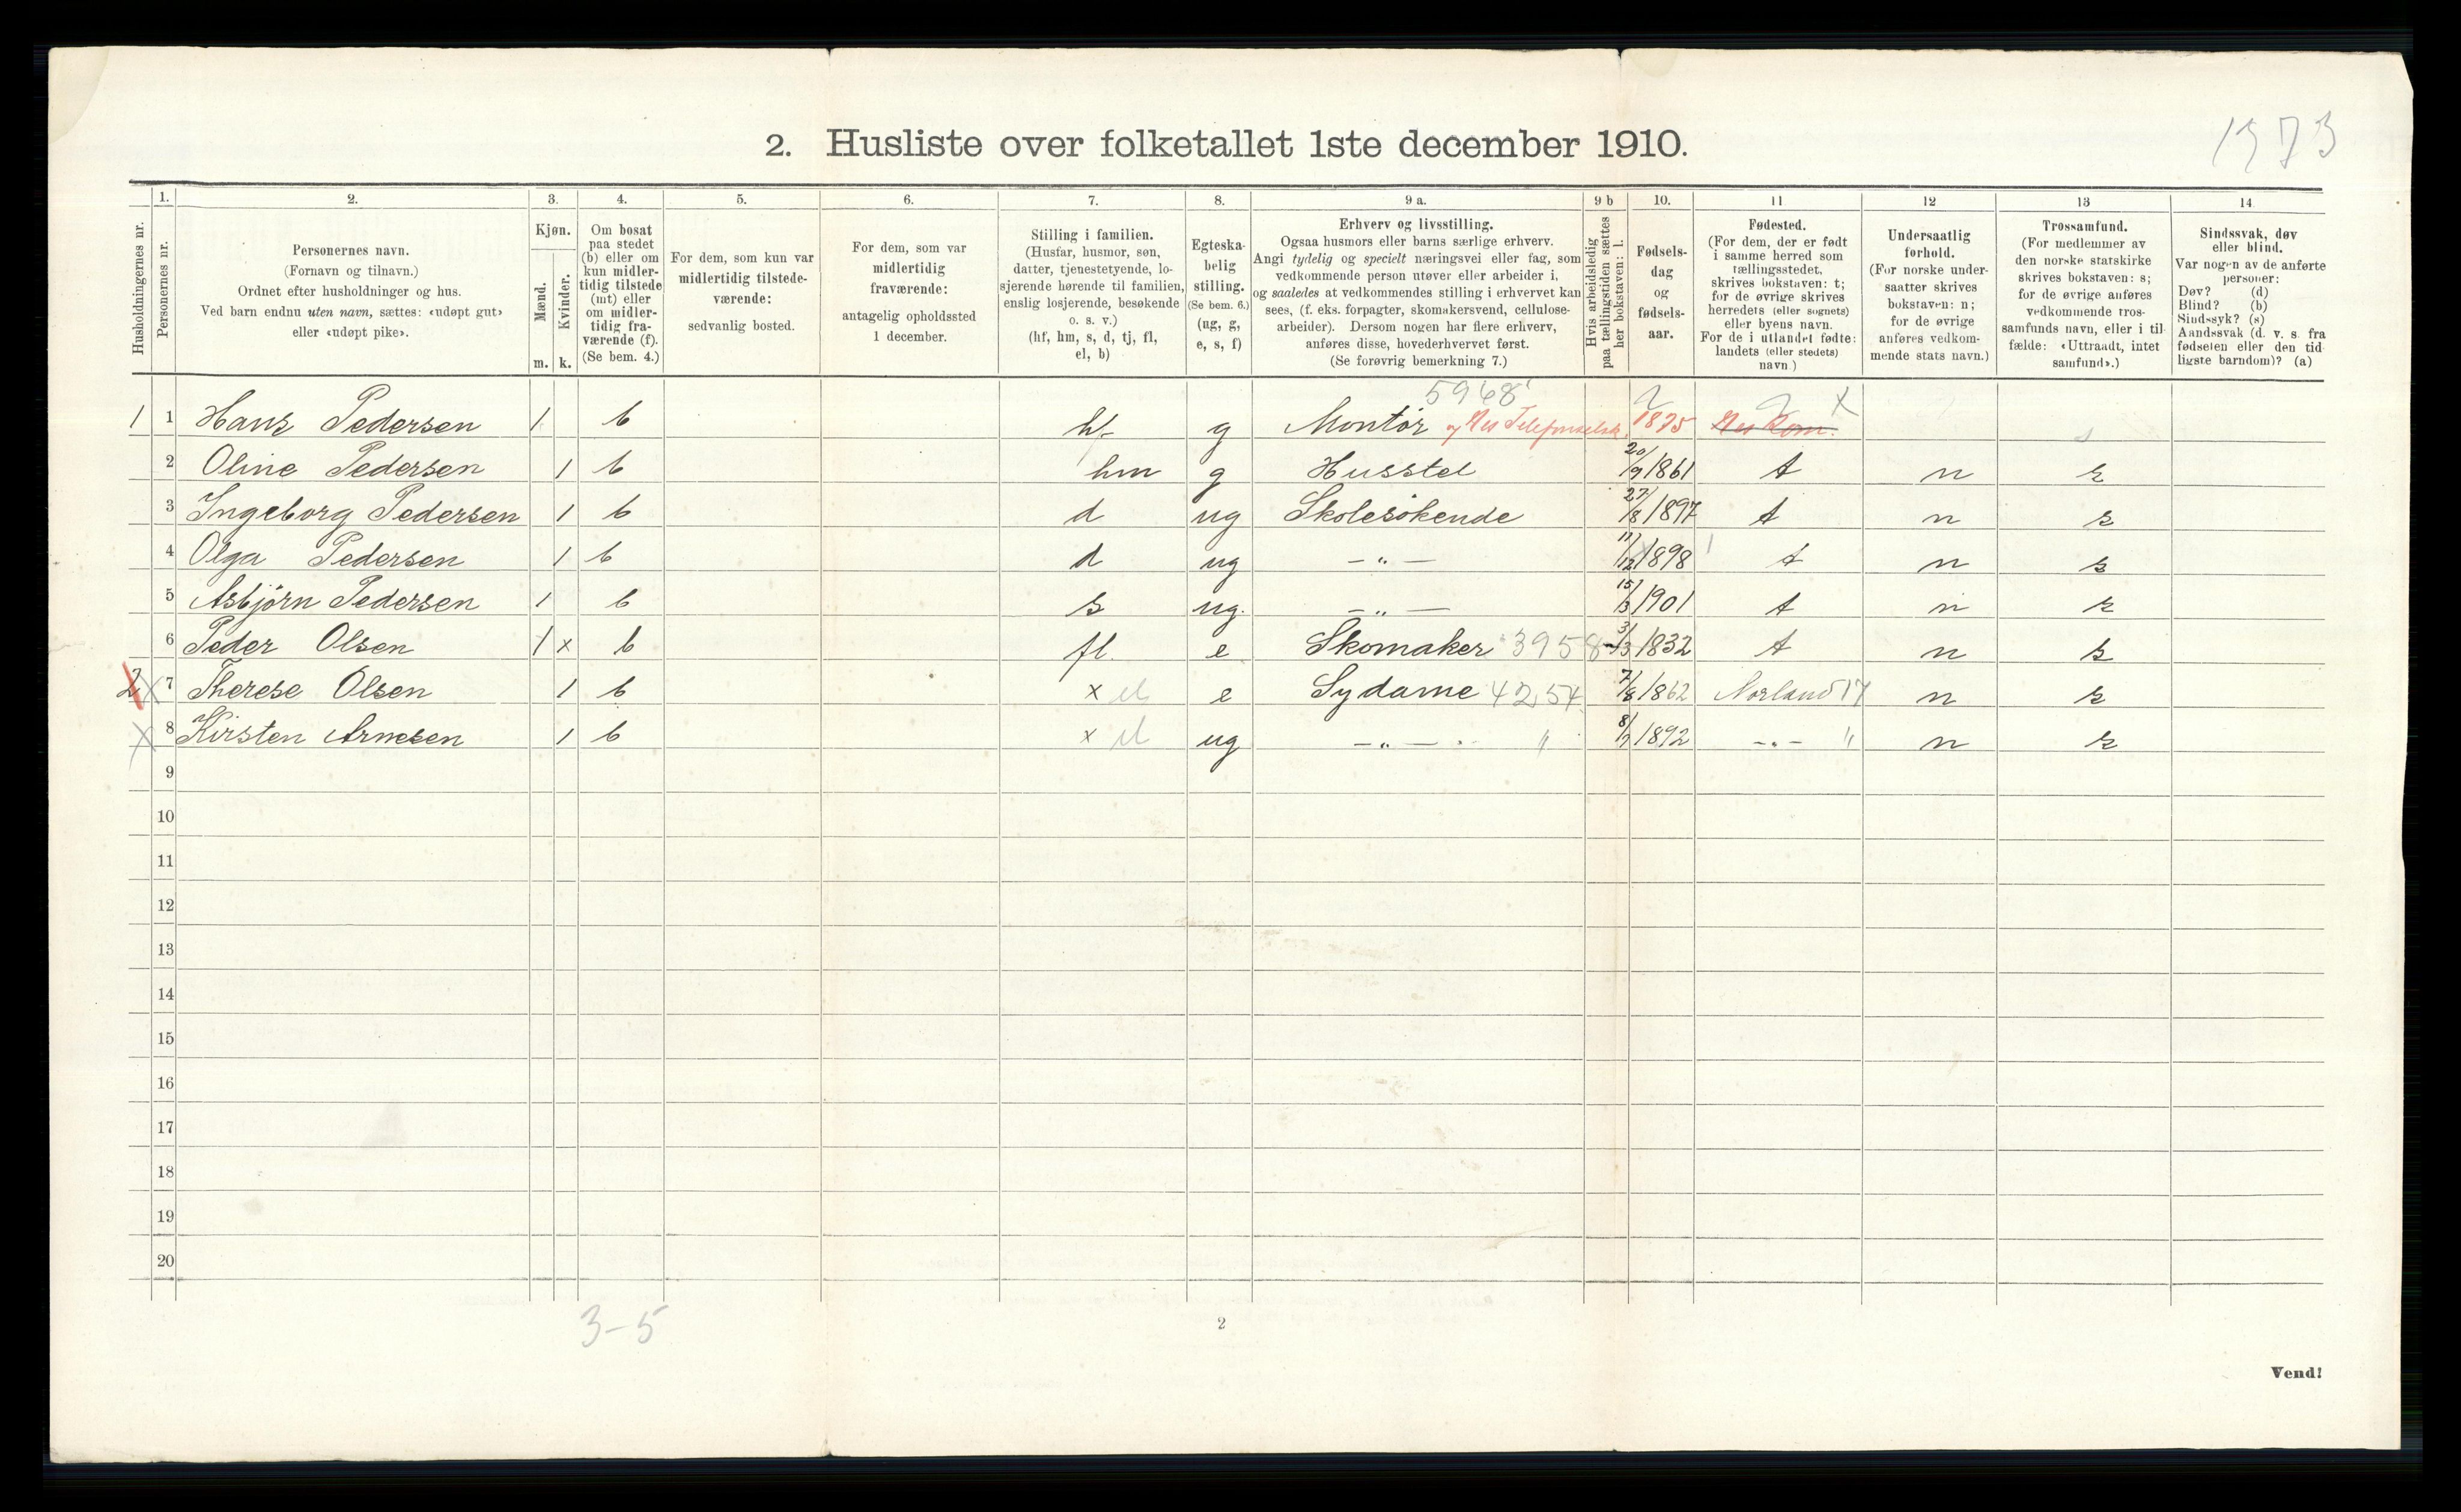 1373
2. Husliste over folketallet 1ste december 1910.
Husholdningernes nr.
1.
Personernes nr.
2.
Personernes navn.
(Fornavn og tilnavn.)
Ordnet efter husholdninger og hus.
Ved barn endnu uten navn, sættes: «udøpt gut»
eller «udøpt pike».
3.
Kjøn.
Mænd.
Kvinder.
m. k.
4.
Om bosat
paa stedet
(b) eller om
kun midler-
tidig tilstede
(mt) eller
om midler-
tidig fra-
værende (f).
(Se bem. 4.)
5.
For dem, som kun var
midlertidig tilstede-
værende:
sedvanlig bosted.
6.
For dem, som var
midlertidig
fraværende:
antagelig opholdssted
1 december.
7.
Stilling i familien.
(Husfar, husmor, søn,
datter, tjenestetyende, lo-
sjerende hørende til familien,
enslig losjerende, besøkende
o. s. v.)
(hf, hm, s, d, tj, fl,
el, b)
8.
Egteska-
belig
stilling.
(Se bem. 6.)
(ug, g,
e, s, f)
9 a.
Erhverv og livsstilling.
Ogsaa husmors eller barns særlige erhverv.
Angi tydelig og specielt næringsvei eller fag, som
vedkommende person utøver eller arbeider i,
og saaledes at vedkommendes stilling i erhvervet kan
sees, (f. eks. forpagter, skomakersvend, cellulose-
arbeider). Dersom nogen har flere erhverv,
anføres disse, hovederhvervet først.
(Se forøvrig bemerkning 7.)
9 b
Hvis arbeidsledig
paa tællingstiden sættes
her bokstaven: l.
10.
Fødsels-
dag
og
fødsels-
aar.
11
Fødested.
(For dem, der er født
i samme herred som
tællingsstedet,
skrives bokstaven: t;
for de øvrige skrives
herredets (eller sognets)
eller byens navn.
For de i utlandet fødte:
landets (eller stedets)
navn.)
12
Undersaatlig
forhold.
(For norske under-
saatter skrives
bokstaven: n;
for de øvrige
anføres vedkom-
mende stats navn.)
13
Trossamfund.
(For medlemmer av
den norske statskirke
skrives bokstaven: s;
for de øvrige anføres
vedkommende tros-
samfunds navn, eller i til-
fælde: «Uttraadt, intet
samfund».)
14
Sindssvak, døv
eller blind.
Var nogen av de anførte
personer:
Døv? (d)
Blind? (b)
Sindssyk? (s)
Aandssvak (d. v. s. fra
fødselen eller den tid
ligste barndom)? (a)
5968
1 1 Hans Pedersen 1 b hf. g Montør og Nes Telefonselsk. 1875 Nes Kom. x s
2 Oline Pedersen 1 b hm g Husstel 20/9 1861 t n s
3 Ingeborg Pedersen 1 b d ug Skolesökende 27/8 1897 t n s
4 Olga Pedersen 1 b d ug — „ — 11/12 1898 t n s
5 Asbjörn Pedersen 1 b s ug. — „ — 15/3 1901 t n s
6 Peder Olsen 1 x b fl. e Skomaker 3958 3/3 1832 t n s
2 x 7 Therese Olsen 1 b x el e Sydame 4254 7/8 1862 Norland 17 n s
x 8 Kirsten Arnesen 1 b x el ug — „ — „ 8/7 1892 — „ — „ n s
9
10
11
12
13
14
15
16
17
18
19
20
3-5
2
Vend!